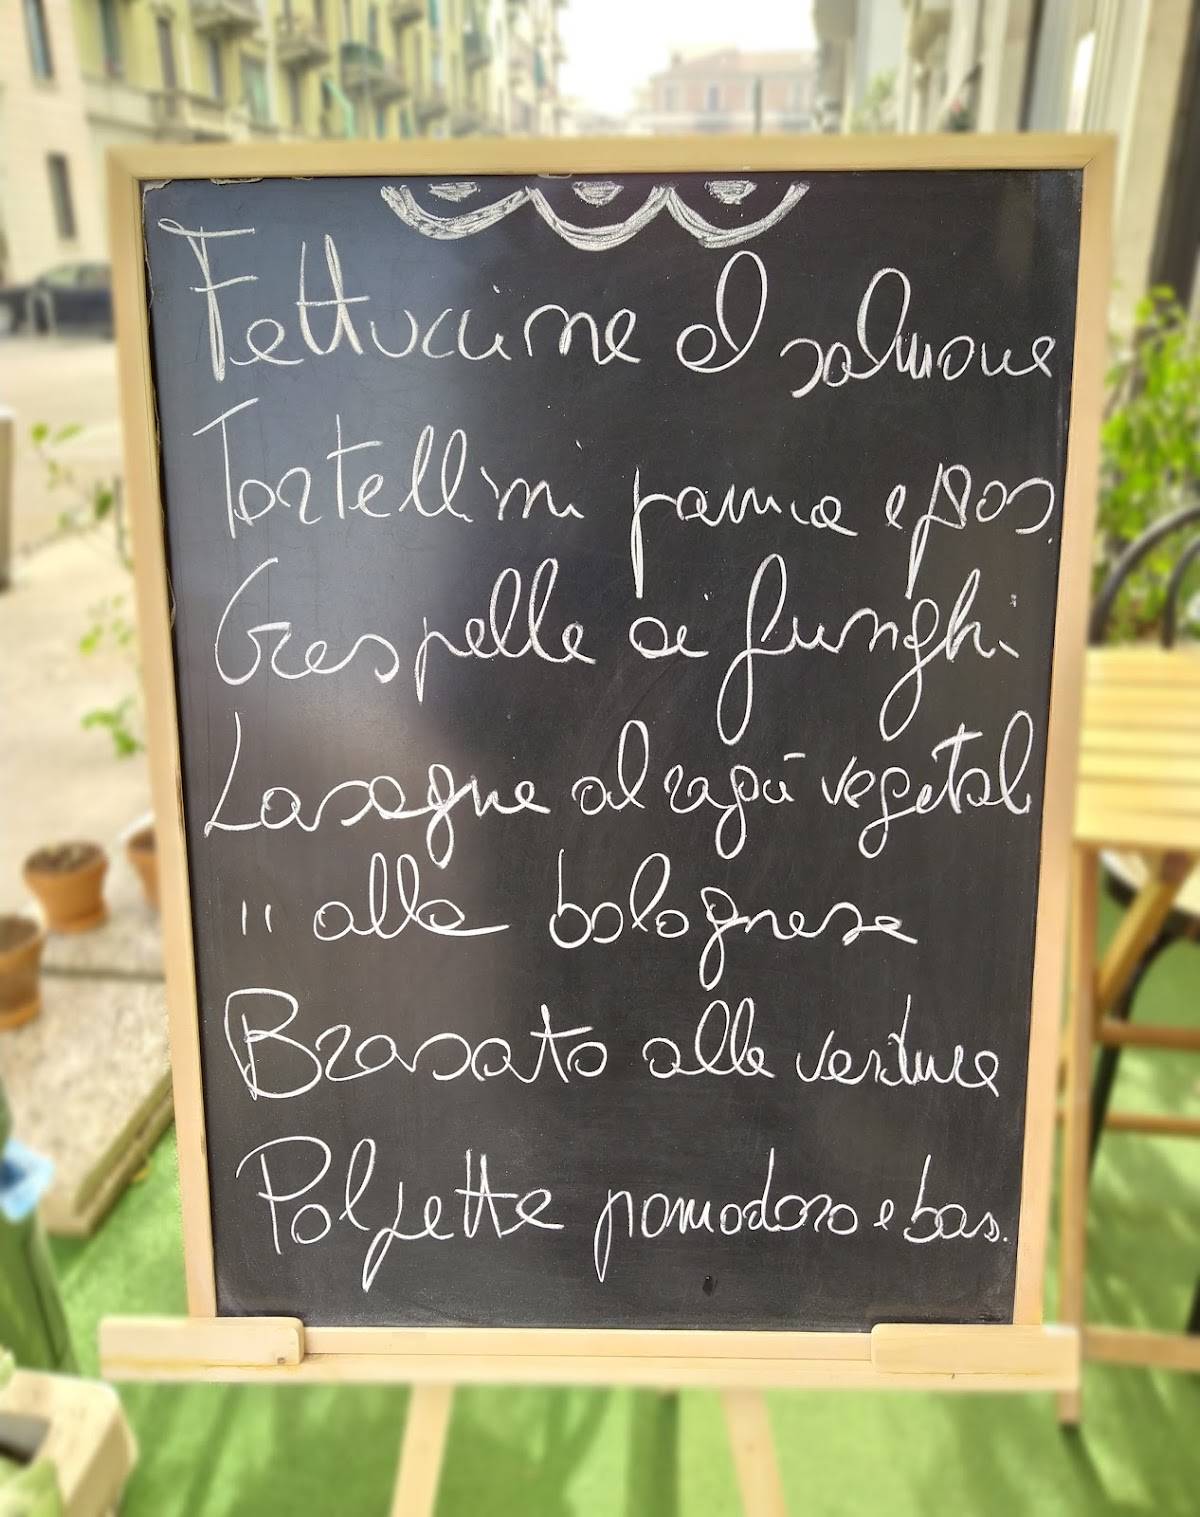 Fettuccine al salmone
Tortellini panna e pros.
Crespelle ai funghi
Lasagne al ragù vegetal
" alla bolognese
Brasato alle verdure
Polpette pomodoro e bas.